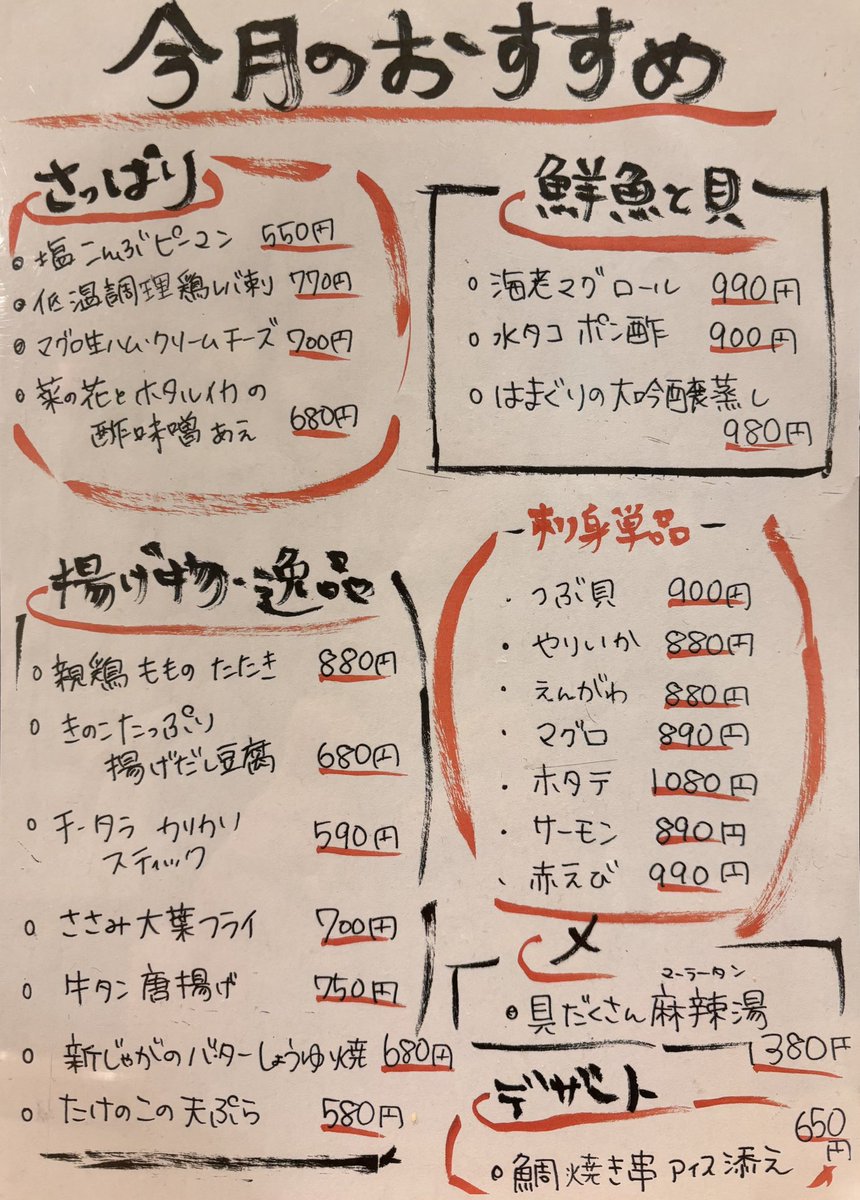 今月のおすすめ
さっぱり
塩こんぶピーマン 550円
低温調理鶏レバ刺 770円
マグロ生ハム・クリームチーズ 700円
菜の花とホタルイカの
酢味噌あえ 680円
鮮魚と貝
海老マグロール 990円
水タコ ポン酢 900円
はまぐりの大吟醸蒸し
980円
揚げ物・逸品
親鶏もものたたき 880円
きのこたっぷり
揚げだし豆腐 680円
チータラ カリカリ
スティック 590円
ささみ大葉フライ 700円
牛タン唐揚げ 750円
新じゃがのバターしょうゆ焼 680円
たけのこの天ぷら 580円
刺身単品
つぶ貝 900円
やりいか 880円
えんがわ 880円
マグロ 890円
ホタテ 1080円
サーモン 890円
赤えび 990円
〆
マーラータン
具だくさん麻辣湯
1380円
デザート
650円
鯛焼き串アイス添え